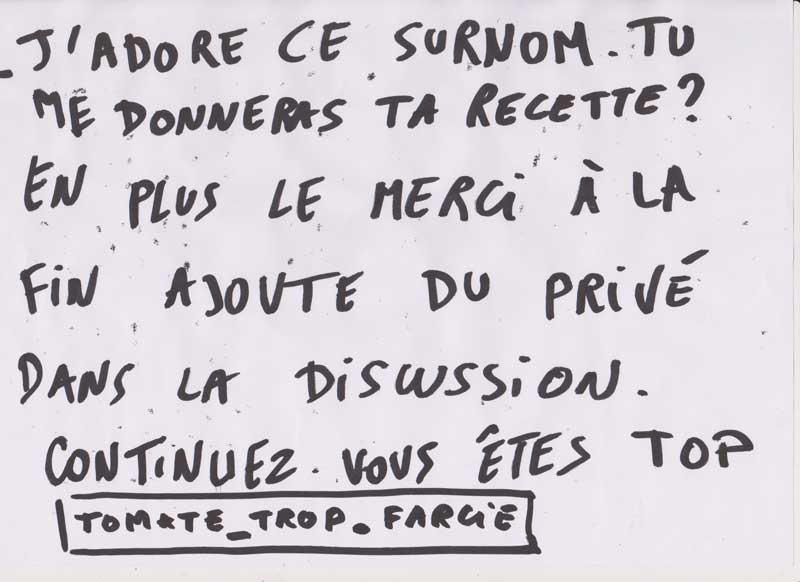 - J'ADORE CE SURNOM. TU
ME DONNERAS TA RECETTE?
EN PLUS LE MERCI À LA
FIN AJOUTE DU PRIVÉ
DANS LA DISCUSSION.
CONTINUEZ. VOUS ÊTES TOP
TOMATE_TROP_FARCIE